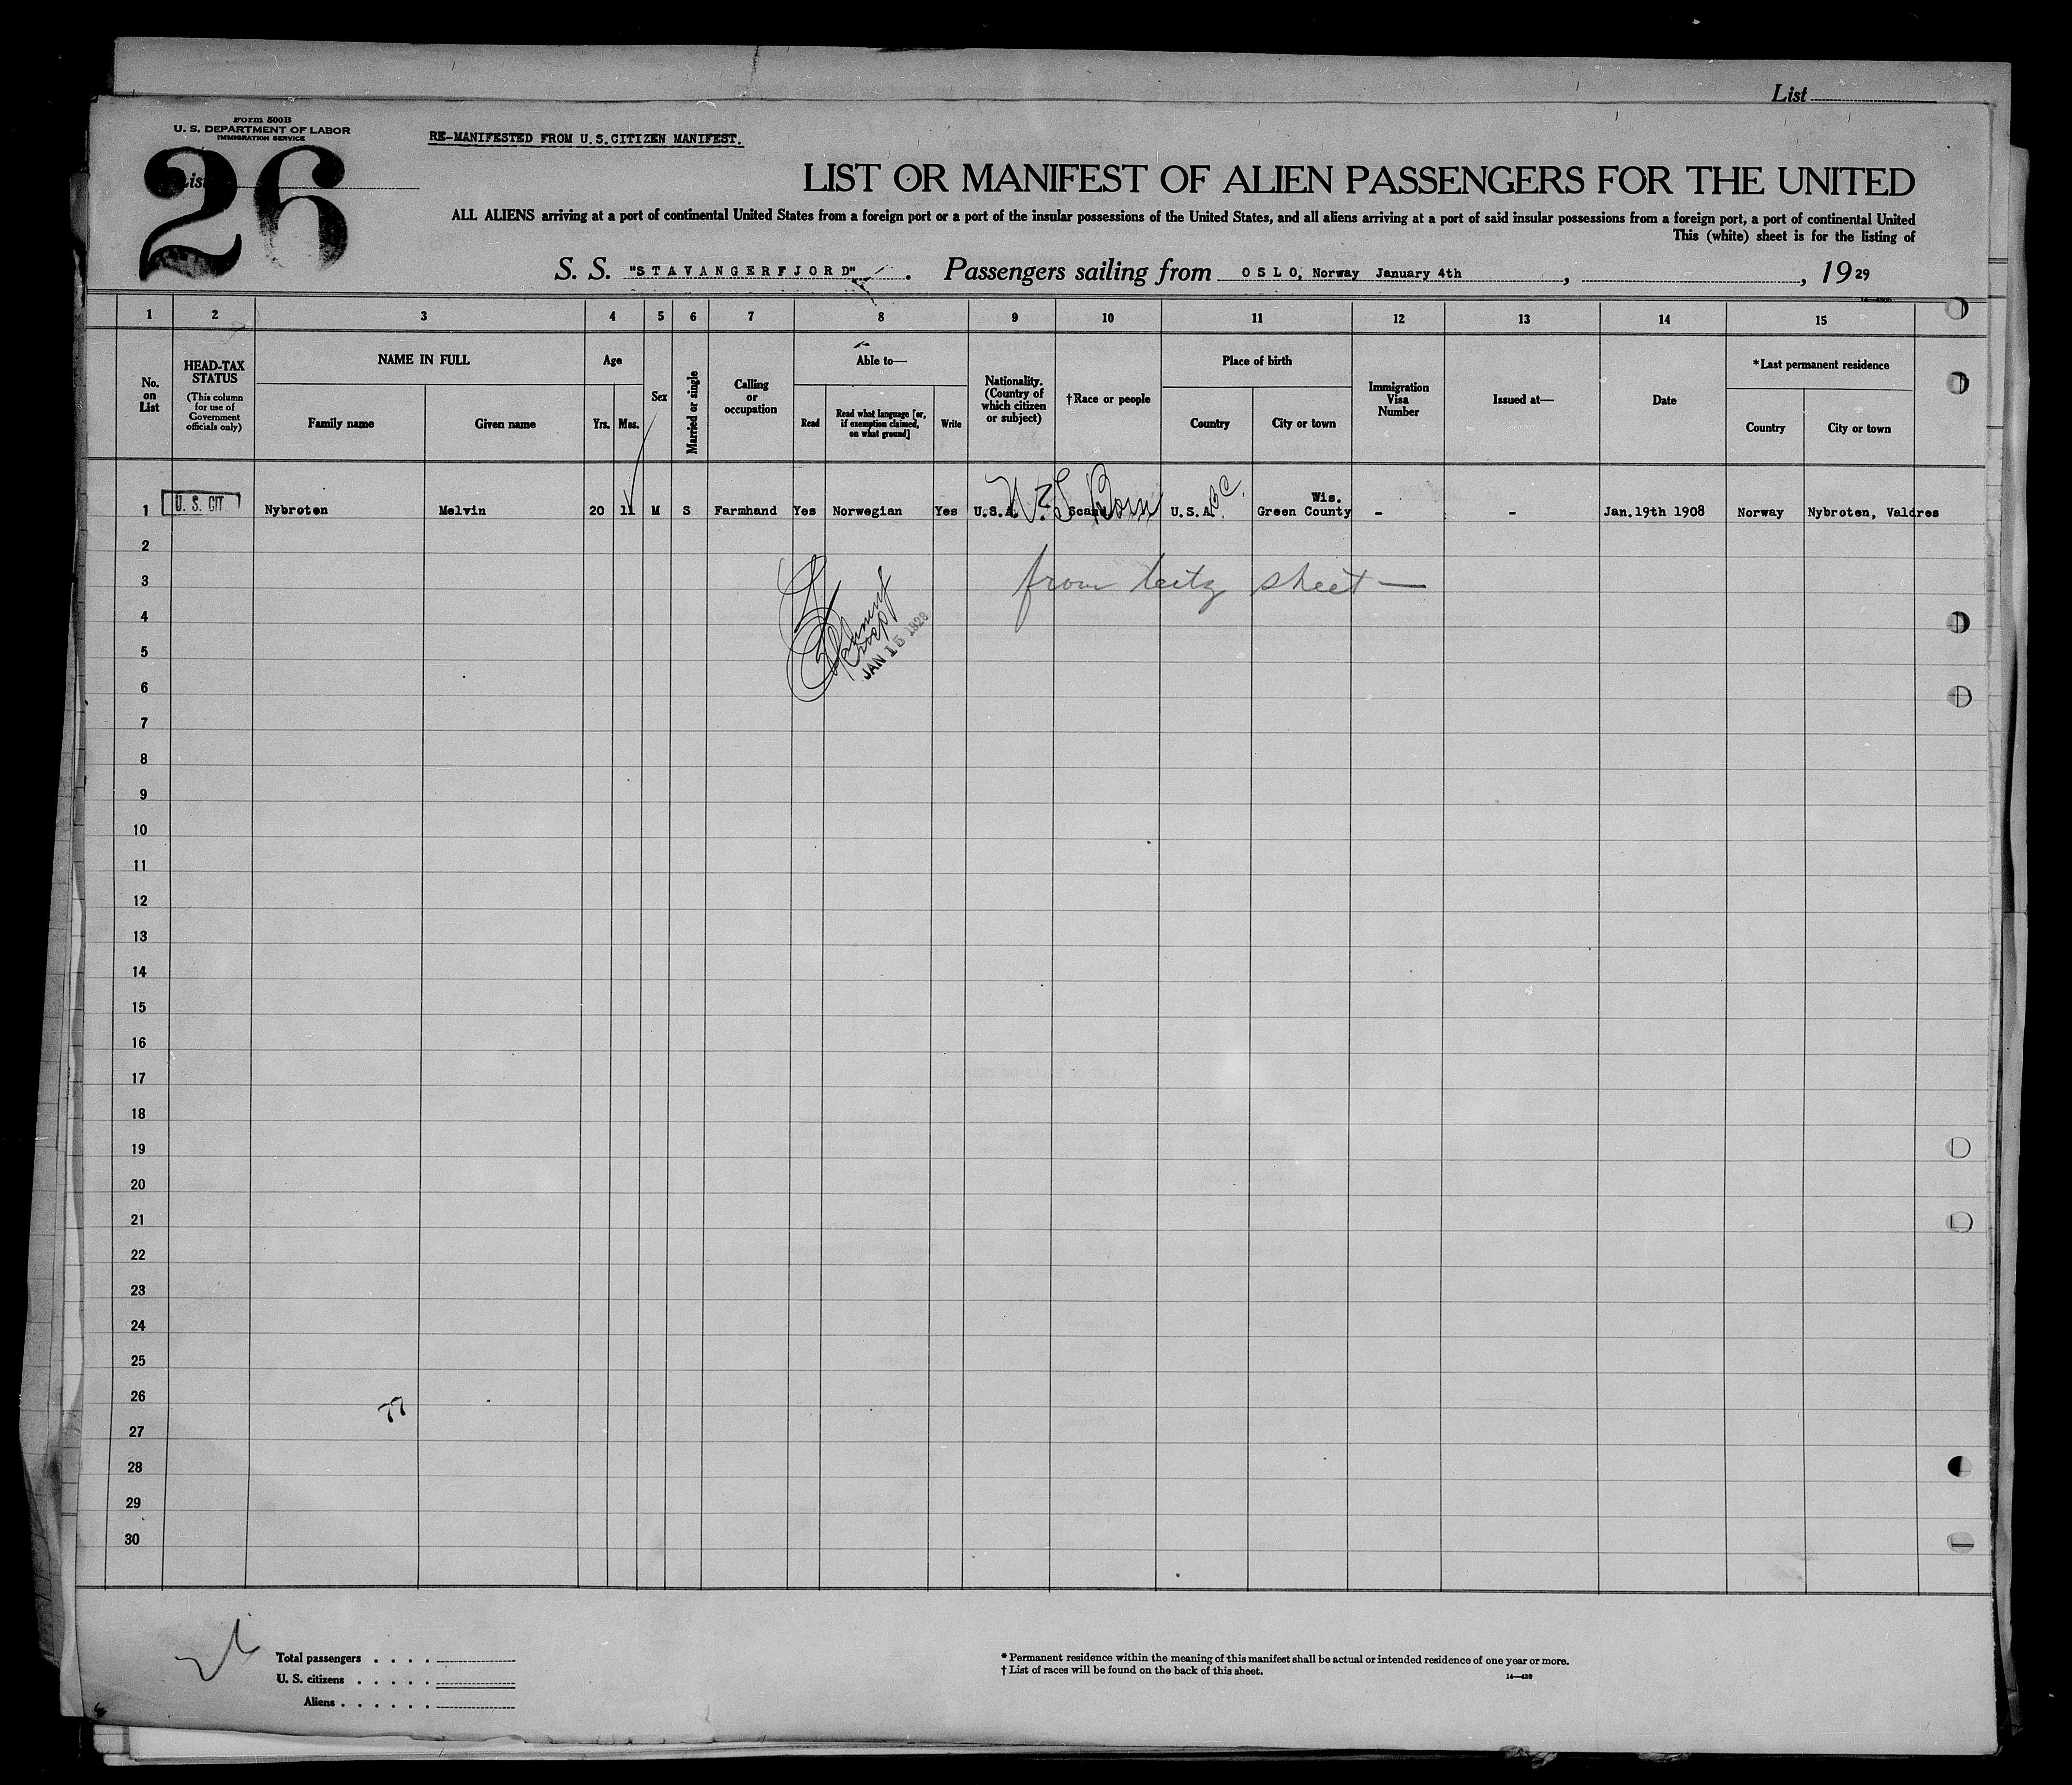 List
Form 500B
U. S. DEPARTMENT OF LABOR
IMMIGRATION SERVICE
RE-MANIFESTED FROM U.S.CITIZEN MANIFEST.
List
26
LIST OR MANIFEST OF ALIEN PASSENGERS FOR THE UNITED
ALL ALIENS arriving at a port of continental United States from a foreign port or a port of the insular possessions of the United States, and all aliens arriving at a port of said insular possessions from a foreign port, a port of continental United
This (white) sheet is for the listing of
S. S. "STAVANGERFJORD" . Passengers sailing from OSLO, Norway January 4th , , 1929
1 2 3 4 5 6 7 8 9 10 11 12 13 14 15
No. on List
HEAD-TAX STATUS
(This column for use of Government officials only)
NAME IN FULL
Family name
Given name
Age
Yrs.
Mos.
Sex
Married or single
Calling or occupation
Able to—
Read
Read what language [or, if exemption claimed, on what ground]
Write
Nationality. (Country of which citizen or subject)
†Race or people
Place of birth
Country
City or town
Immigration Visa Number
Issued at—
Date
*Last permanent residence
Country
City or town
1 U. S. CIT Nybroten Melvin 20 11 M S Farmhand Yes Norwegian Yes U.S.A. Scand U.S.A. Wis. Green County - - Jan.19th 1908 Norway Nybroten, Valdres
U.S. Born
B C.
2
3 from citz sheet —
4
5
JAN 15 1929
6
7
8
9
10
11
12
13
14
15
16
17
18
19
20
21
22
23
24
25
26
77
27
28
29
30
Total passengers . . . .
U. S. citizens . . . . .
Aliens . . . . . .
* Permanent residence within the meaning of this manifest shall be actual or intended residence of one year or more.
† List of races will be found on the back of this sheet.